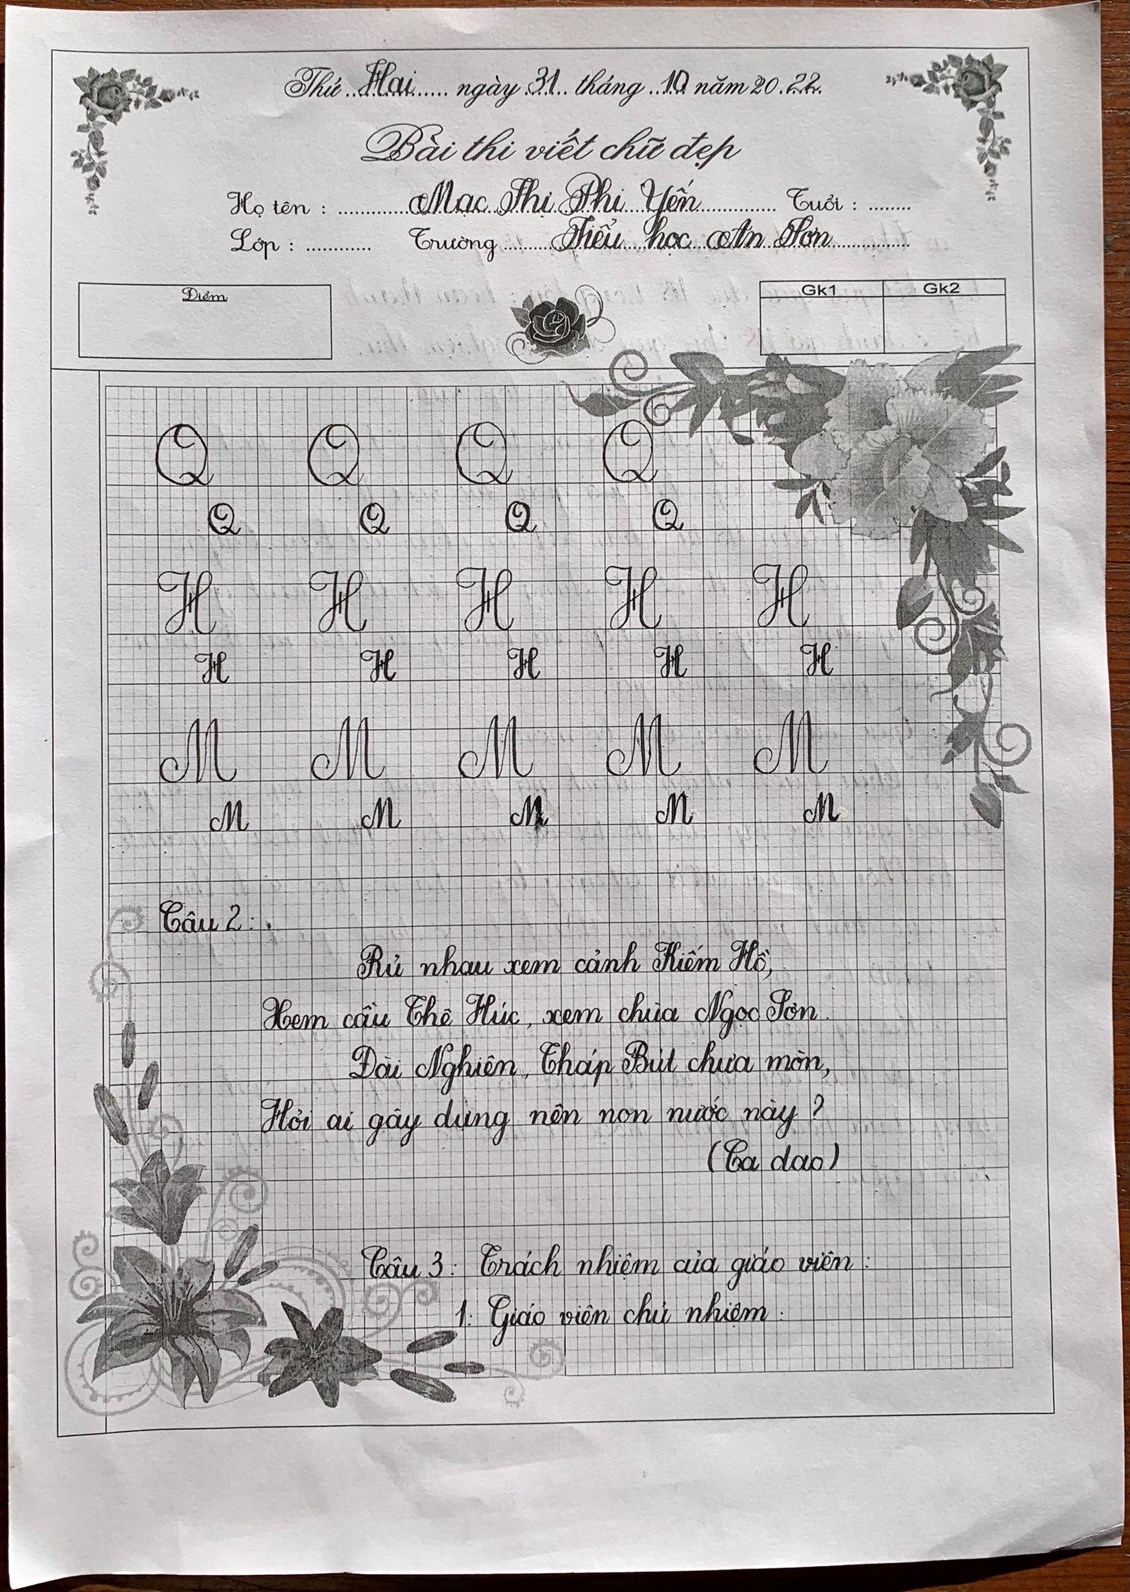 Thứ Hai ngày 31 tháng 10 năm 2022
Bài thi viết chữ đẹp
Họ tên : Mạc Thị Phi Yến Tuổi :
Lớp : Trường Tiểu học An Sơn
Điểm Gk1 Gk2
Q Q Q Q
Q Q Q Q
H H H H H
H H H H H
M M M M M
M M M M M
Câu 2:
Rủ nhau xem cảnh Kiếm Hồ,
Xem cầu Thê Húc, xem chùa Ngọc Sơn.
Đài Nghiên, Tháp Bút chưa mòn,
Hỏi ai gây dựng nên non nước này ?
(Ca dao)
Câu 3: Trách nhiệm của giáo viên :
1. Giáo viên chủ nhiệm :